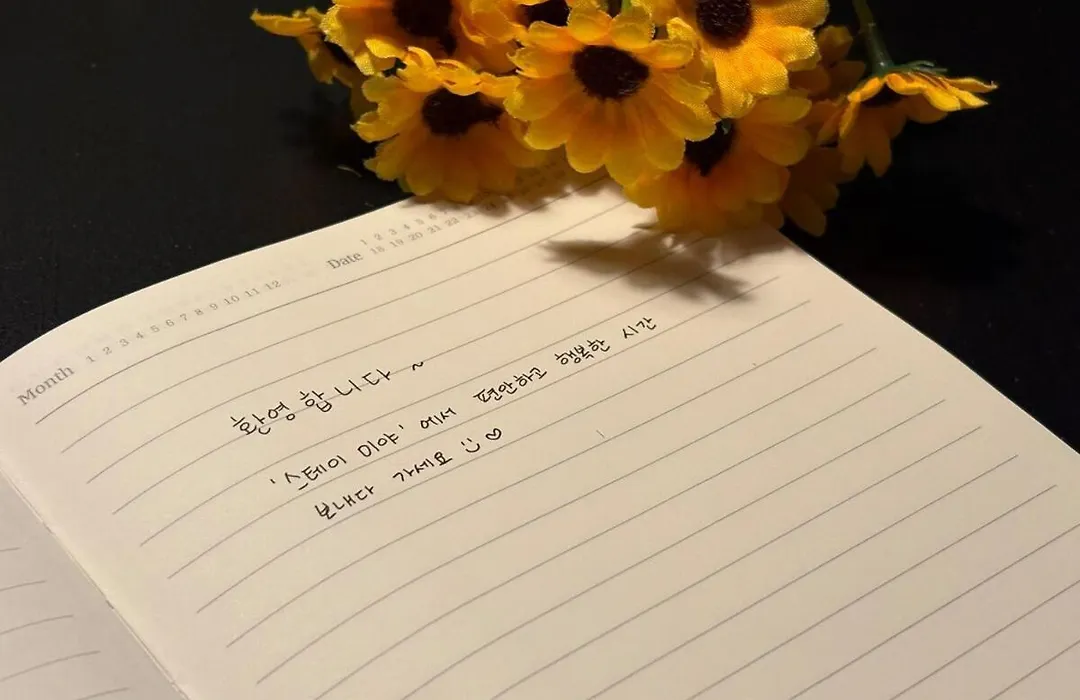 Month 1 2 3 4 5 6 7 8 9 10 11 12
Date 1 2 3 4 5 6
18 19 20 21 22
환영합니다 ~
'스테이 미야' 에서 편안하고 행복한 시간
보내다 가세요 :) ♡